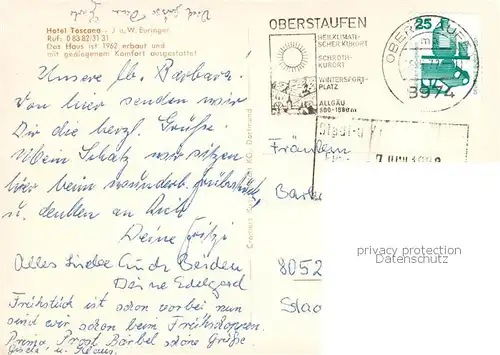 Hotel Toscana - J. u. W. Euringer
Ruf: 0 83 82/31 31
Das Haus ist 1962 erbaut und
mit gediegenem Komfort ausgestattet
OBERSTAUFEN
HEILKLIMATI-
SCHER KURORT
SCHROTH-
KURORT
WINTERSPORT-
PLATZ
ALLGÄU
800-1800m
25
OBERSTAUFEN
8974
Unsere lb. Barbara.
Von hier senden wir
Dir die herzl. Grüße.
Mein Schatz wir sitzen
hier beim wunderb. Frühstück
u. denken an Dich
Deine Fritzi
Alles Liebe Euch Beiden
Deine Edelgard
Frühstück ist schon vorbei nun
sind wir schon beim Frühschoppen.
Prima Prost Bärbel schöne Grüße
Gisela u. Klaus.
Fräulein
Barba
8052
Stadt-
privacy protection
Datenschutz